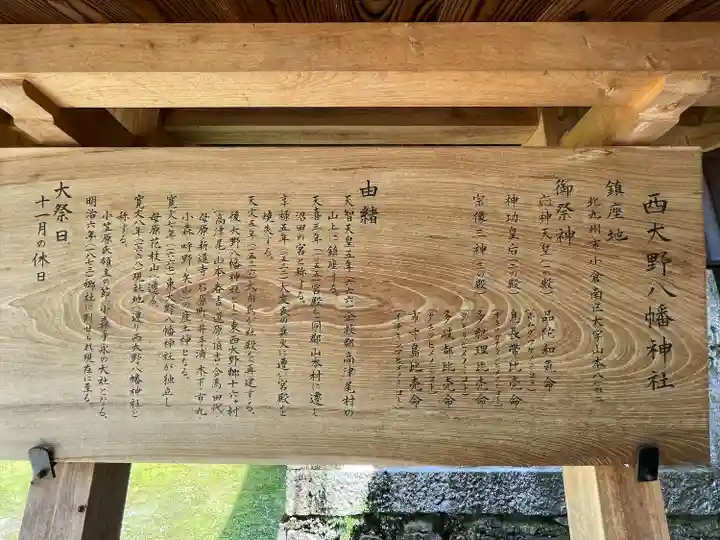 西大野八幡神社
鎮座地
北九州市小倉南区大字山本八四一
御祭神
応神天皇(一の殿) 品陀和気命
神功皇后(二の殿) 息長帯比売命
宗像三神(三の殿) 多紀理比売命
多岐都比売命
市寸島比売命
由緒
天智天皇五年(六六六)企救郡高津尾村の
山上に鎮座する。
天喜三年(一〇五五)宮殿を同郡山本村に遷し
沼田の宮と称する。
享禄五年(一五三二)大友氏の兵火に遭い宮殿を
焼失する。
天文五年(一五三六)大内氏が社殿を再建する。
後大野八幡神社とし東西大野郷十六ヶ村
高津尾 山本 春吉 道原 頂吉 合馬 田代
母原 新道寺 石原町 井手浦 木下 市丸
小森 呼野 矢山の産土神となる。
寛文七年(一六六七)東大野八幡神社が独立し
母原花枝山へ遷る。
寛文八年(一六六八)現社地へ遷り西大野八幡神社と
称する。
小笠原氏領主の節 小倉藩
明治六年(一八七三)郷社に列せられ現在に至る。
大祭日
十一月の休日